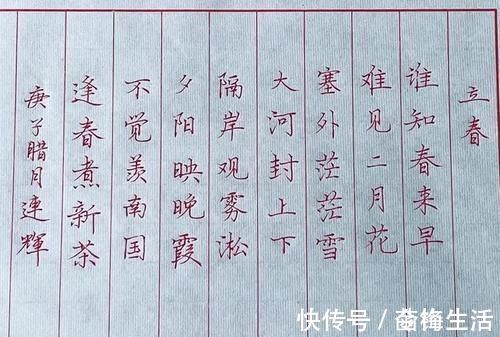 立春
谁知春来早
难见二月花
塞外茫茫雪
大河封上下
隔岸观雾凇
夕阳映晚霞
不觉羡南国
逢春煮新茶
庚子腊月連輝
快传号／薔梅生活